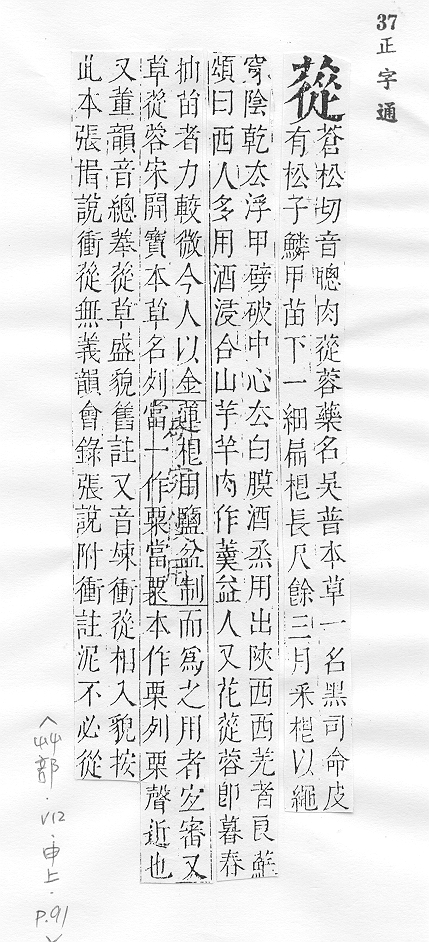 37 正字通
蓯
蒼松切音聰肉蓯蓉藥名吳普本草一名黑司命皮
有松子鱗甲苗下一細扁根長尺餘三月采根以繩
穿陰乾去浮甲劈破中心去白膜酒烝用出陝西西羌者良蘇
頌曰西人多用酒浸合山芋羊肉作羹益人又花蓯蓉卽暮春
抽苗者力較微今人以金蓮根用鹽盆制而爲之用者宜審又
草蓯蓉宋開寶本草名列當一作粟當粟本作栗列栗聲近也
又董韻音總菶蓯草盛貌舊註又音竦衝蓯相入貌按
此本張揖說衝蓯無義韻會錄張說附衝註泥不必從
<艸部．V12．申上．P.91>